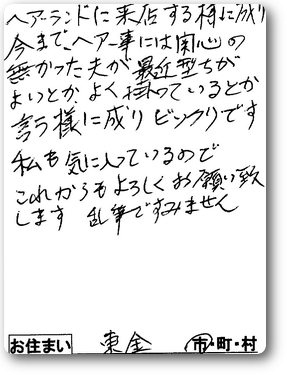 ヘアーランドに来店する様に成り
今まで、ヘアー事には関心の
無かった夫が、最近型ちが
よいとか よく揃っているとか
言う様に成りビックリです
私も気に入っているので
これからもよろしくお願い致
します 乱筆ですみません
お住まい 東金 市・町・村